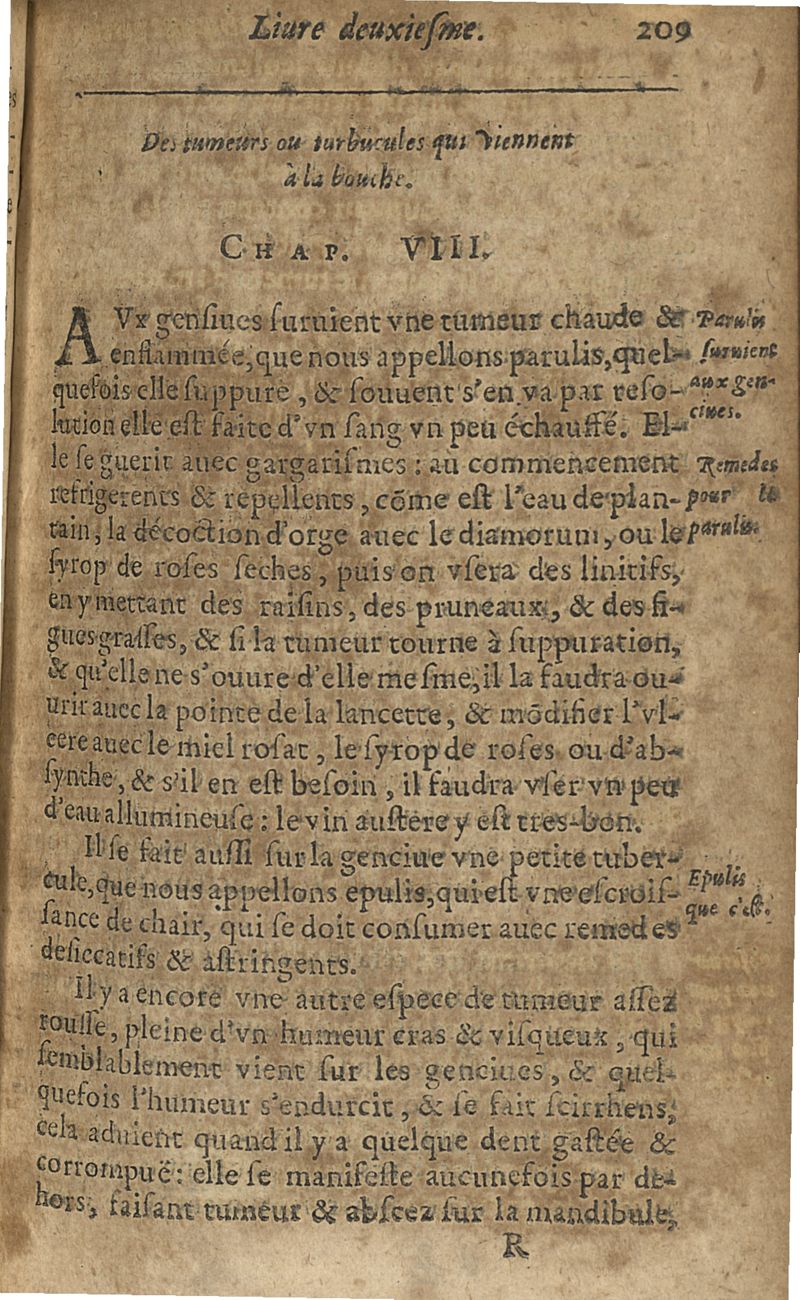 Liure deuxieſme. 209
Des tumeurs ou turbucules qui viennent
à la bouche.
CHAP. VIII.
AVx genſiues ſuruient vne tumeur chaude &
enflammée, que nous appellons parulis, quel-
quefois elle ſuppure, & ſouuent s'en va par reſo-
lution elle eſt faite d'vn ſang vn peu échauffé. El-
le ſe guerit auec gargariſmes : au commencement
refrigerents & repellents, cõme eſt l'eau de plan-
tain, la décoction d'orge auec le diamorum, ou le
ſyrop de roſes ſeches, puis on vſera des linitifs,
en y mettant des raiſins, des pruneaux, & des fi-
gues graſſes, & ſi la tumeur tourne à ſuppuration,
& qu'elle ne s'ouure d'elle meſme, il la faudra ou-
urir auec la pointe de la lancette, & mõdifier l'vl-
cere auec le miel roſat, le ſyrop de roſes ou d'ab-
ſynthe, & s'il en eſt beſoin, il faudra vſer vn peu
d'eau allumineuſe : le vin auſtere y eſt tres-bon.
Il ſe fait auſſi ſur la genciue vne petite tuber-
cule, que nous appellons epulis, qui eſt vne eſcroiſ-
ſance de chair, qui ſe doit conſumer auec remedes
deſiccatifs & aſtringents.
Il y a encore vne autre eſpece de tumeur aſſez
rouſſe, pleine d'vn humeur cras & viſqueux, qui
ſemblablement vient ſur les genciues, & quel-
quefois l'humeur s'endurcit, & ſe fait ſcirrhens,
cela aduient quand il y a quelque dent gaſtée &
corrompuë : elle ſe manifeſte aucunefois par de-
hors, faiſant tumeur & abſcez ſur la mandibule,
R
Parulis
ſuruient
aux gen-
ciues.
Remedes
pour le
parulis.
Epulis
que c'eſt.